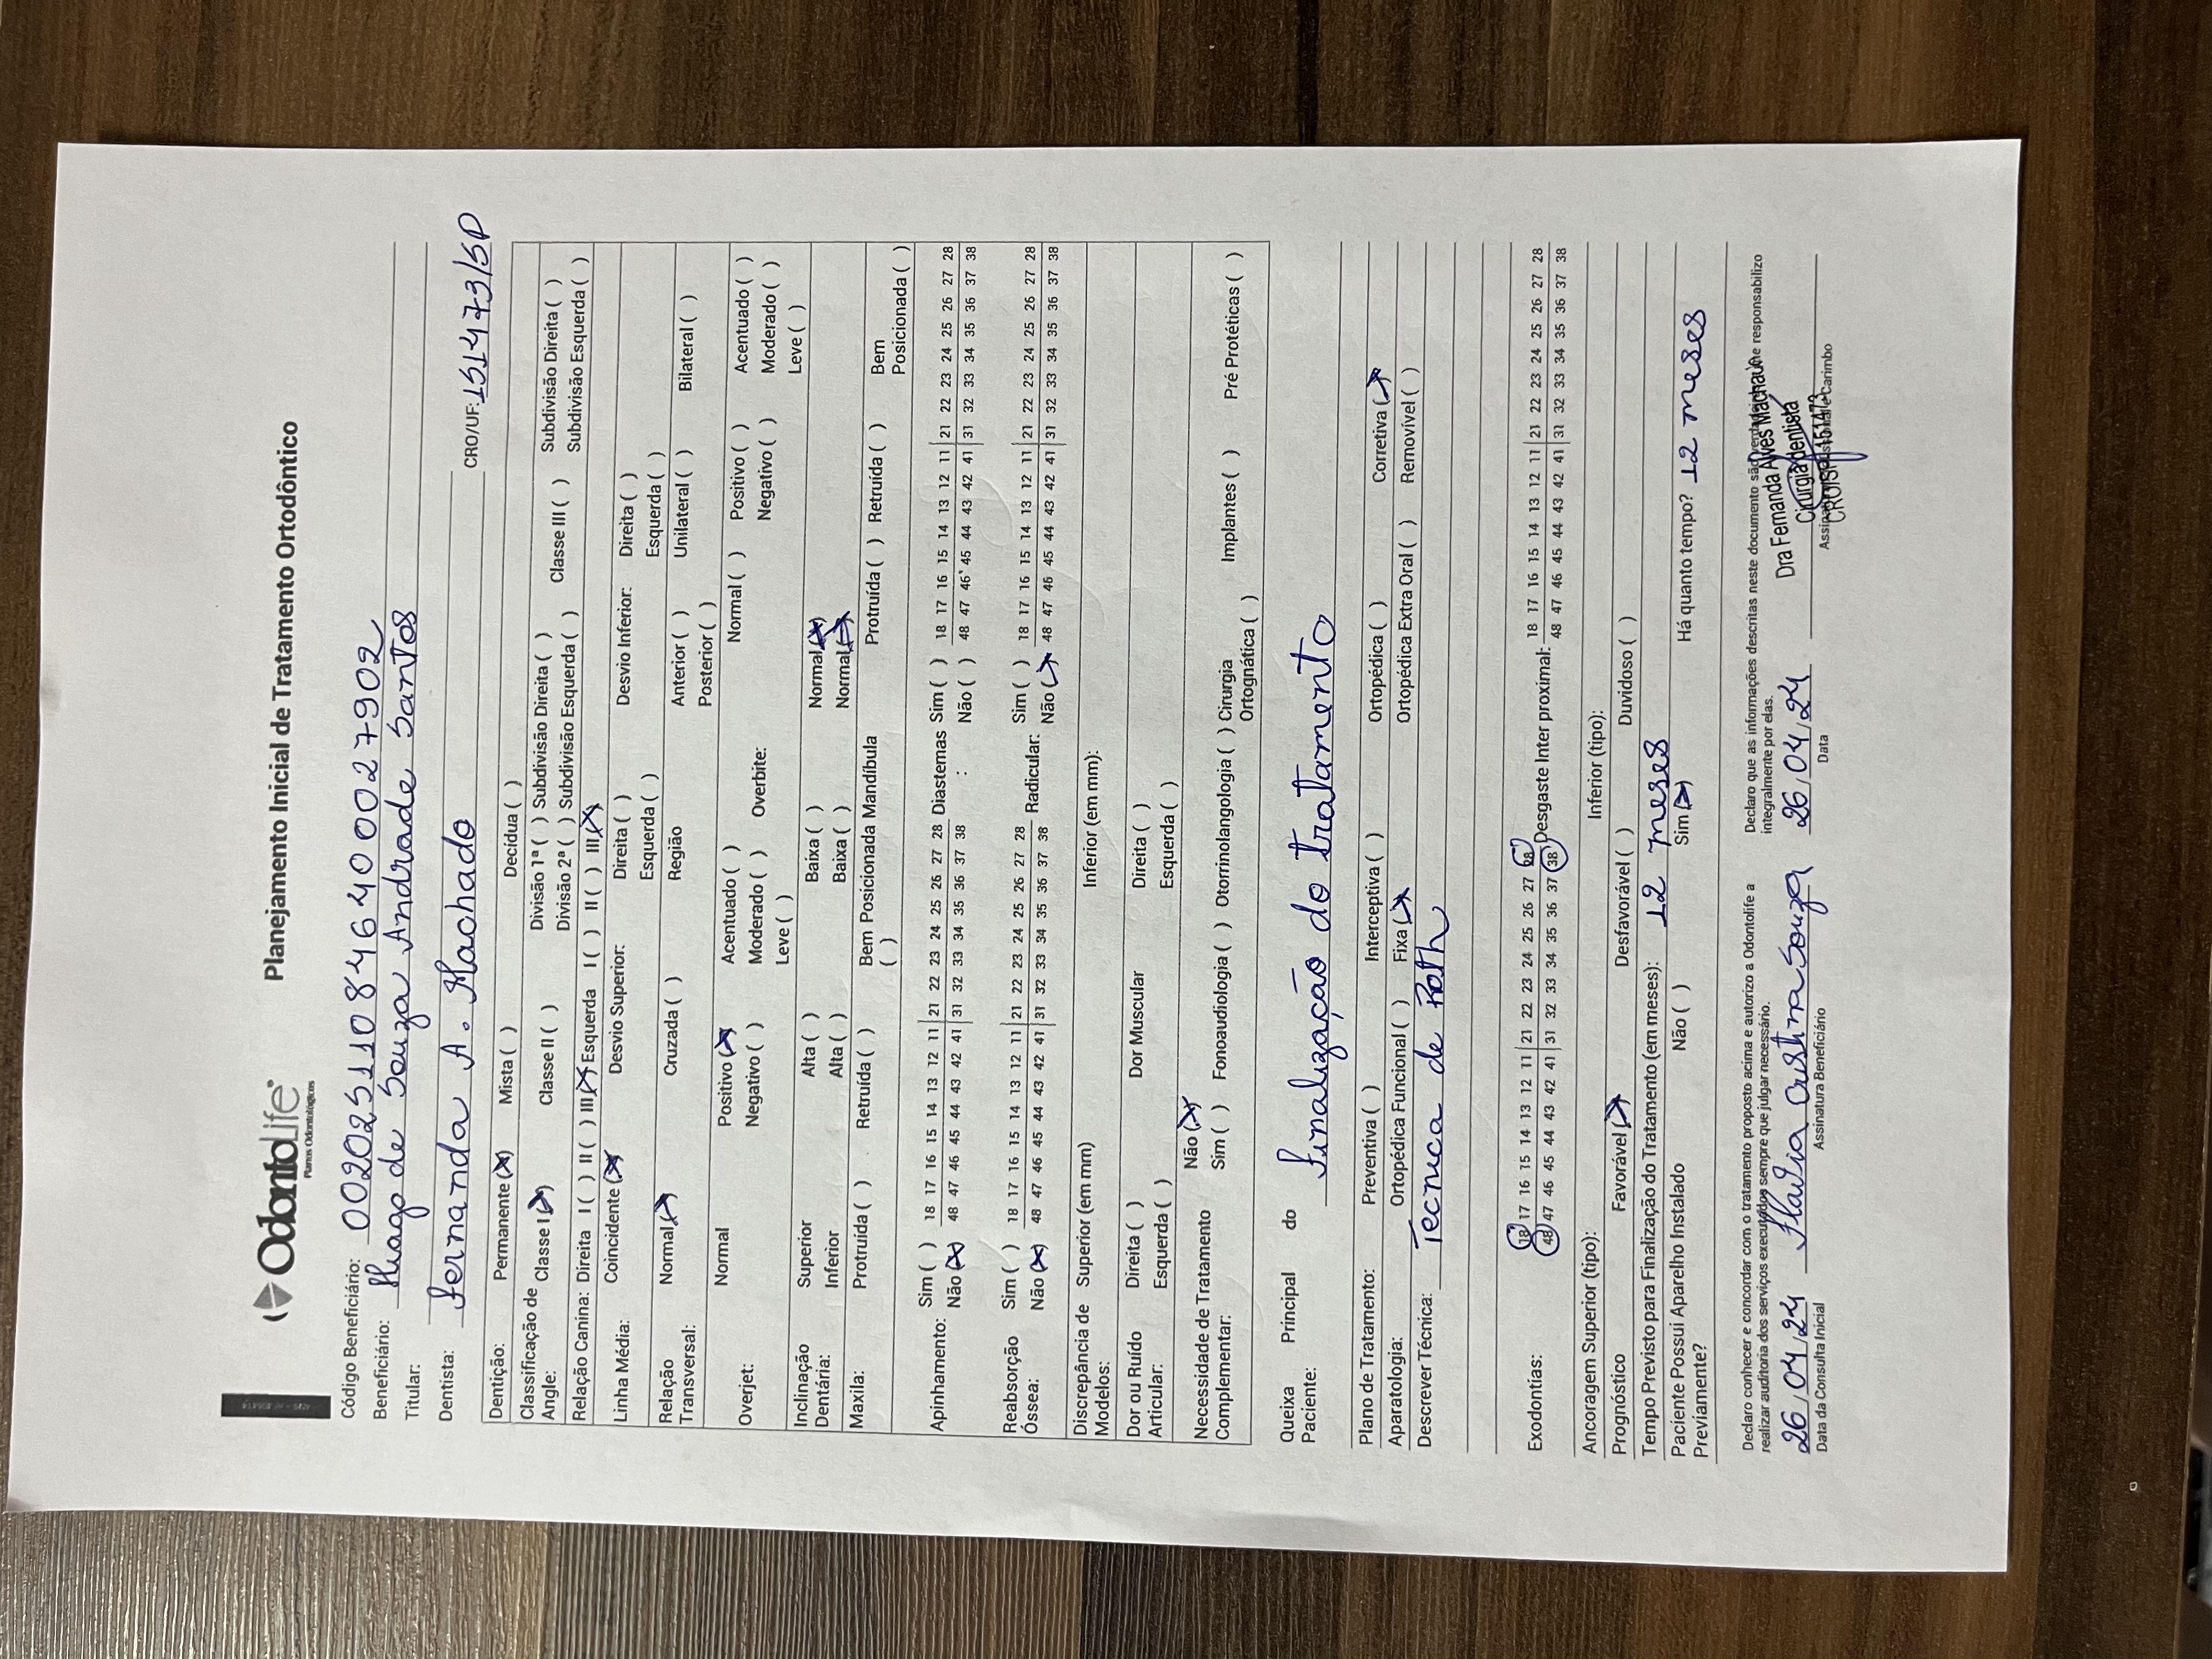 OdontoLife
Planos Odontológicos
Planejamento Inicial de Tratamento Ortodôntico
Código Beneficiário: 00202511084640027902
Beneficiário: Thiago de Souza Andrade Santos
Titular:
Dentista: Fernanda A. Machado CRO/UF: 151473/SP
Dentição: Permanente (X) Mista ( ) Decídua ( )
Classificação de Angle: Classe I (X) Classe II ( ) Divisão 1ª ( ) Subdivisão Direita ( ) Classe III ( ) Subdivisão Direita ( )
Divisão 2ª ( ) Subdivisão Esquerda ( ) Subdivisão Esquerda ( )
Relação Canina: Direita I ( ) II ( ) III (X) Esquerda I ( ) II ( ) III (X)
Linha Média: Coincidente (X) Desvio Superior: Direita ( ) Desvio Inferior: Direita ( )
Esquerda ( ) Esquerda ( )
Relação Transversal: Normal (X) Cruzada ( ) Região Anterior ( ) Unilateral ( ) Bilateral ( )
Posterior ( )
Overjet: Normal Positivo (X) Acentuado ( ) Overbite: Normal ( ) Positivo ( ) Acentuado ( )
Negativo ( ) Moderado ( ) Negativo ( ) Moderado ( )
Leve ( ) Leve ( )
Inclinação Dentária: Superior Alta ( ) Baixa ( ) Normal (X)
Inferior Alta ( ) Baixa ( ) Normal (X)
Maxila: Protruída ( ) Retruída ( ) Bem Posicionada ( ) Mandíbula Protruída ( ) Retruída ( ) Bem Posicionada ( )
Apinhamento: Sim ( ) 18 17 16 15 14 13 12 11 | 21 22 23 24 25 26 27 28 Diastemas : Sim ( ) 18 17 16 15 14 13 12 11 | 21 22 23 24 25 26 27 28
Não (X) 48 47 46 45 44 43 42 41 | 31 32 33 34 35 36 37 38 Não ( ) 48 47 46 45 44 43 42 41 | 31 32 33 34 35 36 37 38
Reabsorção Óssea: Sim ( ) 18 17 16 15 14 13 12 11 | 21 22 23 24 25 26 27 28 Radicular: Sim ( ) 18 17 16 15 14 13 12 11 | 21 22 23 24 25 26 27 28
Não (X) 48 47 46 45 44 43 42 41 | 31 32 33 34 35 36 37 38 Não (X) 48 47 46 45 44 43 42 41 | 31 32 33 34 35 36 37 38
Discrepância de Modelos: Superior (em mm) Inferior (em mm):
Dor ou Ruído Articular: Direita ( ) Dor Muscular Direita ( )
Esquerda ( ) Esquerda ( )
Necessidade de Tratamento Complementar: Não (X)
Sim ( ) Fonoaudiologia ( ) Otorrinolangologia ( ) Cirurgia Ortognática ( ) Implantes ( ) Pré Protéticas ( )
Queixa Principal do Paciente: Finalização do tratamento
Plano de Tratamento: Preventiva ( ) Interceptiva ( ) Ortopédica ( ) Corretiva (X)
Aparatologia: Ortopédica Funcional ( ) Fixa (X) Ortopédica Extra Oral ( ) Removível ( )
Descrever Técnica: Tecnica de Roth
Exodontias: 18 17 16 15 14 13 12 11 | 21 22 23 24 25 26 27 28 Desgaste Inter proximal: 18 17 16 15 14 13 12 11 | 21 22 23 24 25 26 27 28
48 47 46 45 44 43 42 41 | 31 32 33 34 35 36 37 38 48 47 46 45 44 43 42 41 | 31 32 33 34 35 36 37 38
Ancoragem Superior (tipo): Inferior (tipo):
Prognóstico Favorável (X) Desfavorável ( ) Duvidoso ( )
Tempo Previsto para Finalização do Tratamento (em meses): 12 meses
Paciente Possui Aparelho Instalado Previamente? Não ( ) Sim (X) Há quanto tempo? 12 meses
Declaro conhecer e concordar com o tratamento proposto acima e autorizo a Odontolife a
realizar auditoria dos serviços executados sempre que julgar necessário.
Declaro que as informações descritas neste documento são verdadeiras e me responsabilizo
integralmente por elas.
26/04/24 Flavia Cristina Souza
Data da Consulta Inicial Assinatura Beneficiário
26/04/24
Data
Dra Fernanda Alves Machado
Cirurgiã dentista
CRO/SP 151473
Assinatura Profissional e Carimbo